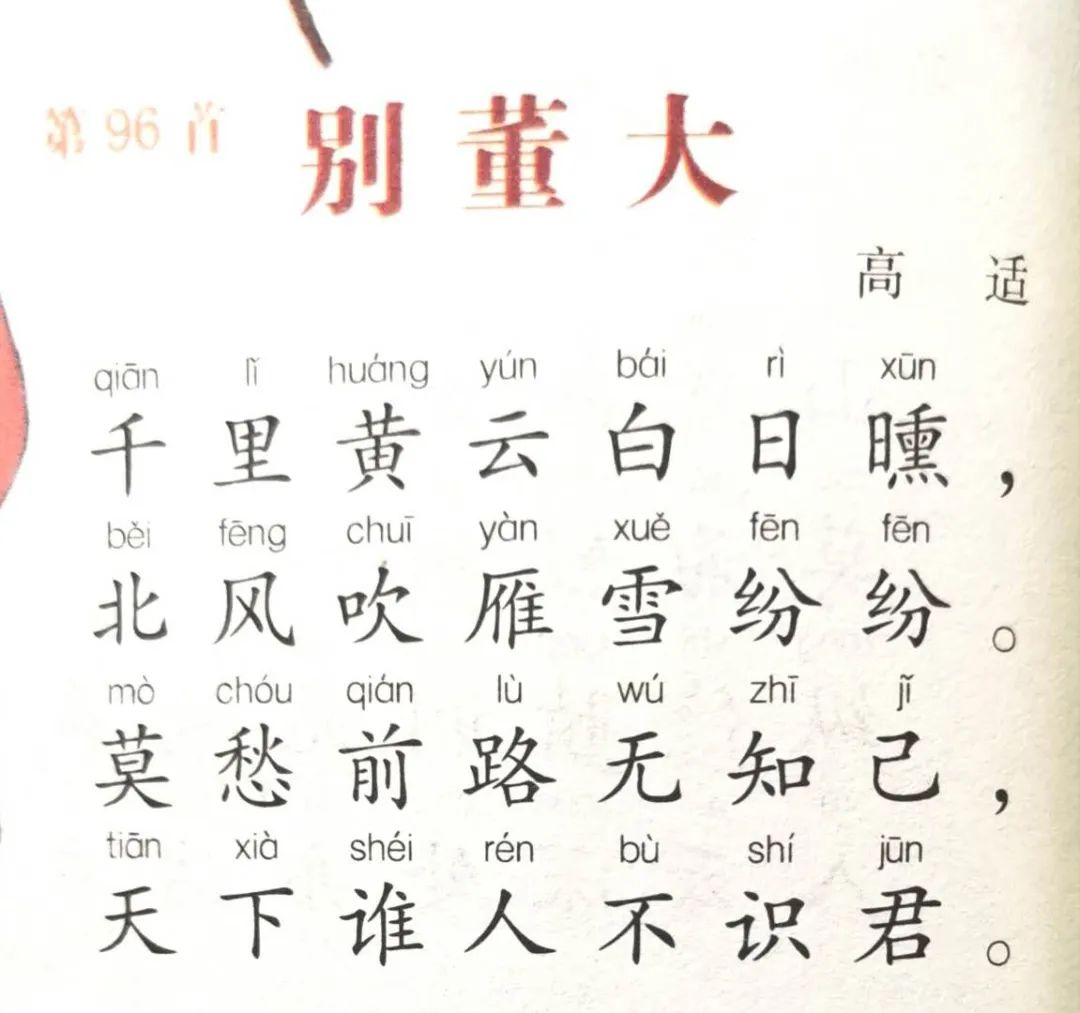 第96首 别董大
高适
qiān lǐ huáng yún bái rì xūn
千里黄云白日曛，
běi fēng chuī yàn xuě fēn fēn
北风吹雁雪纷纷。
mò chóu qián lù wú zhī jǐ
莫愁前路无知己，
tiān xià shéi rén bù shí jūn
天下谁人不识君。